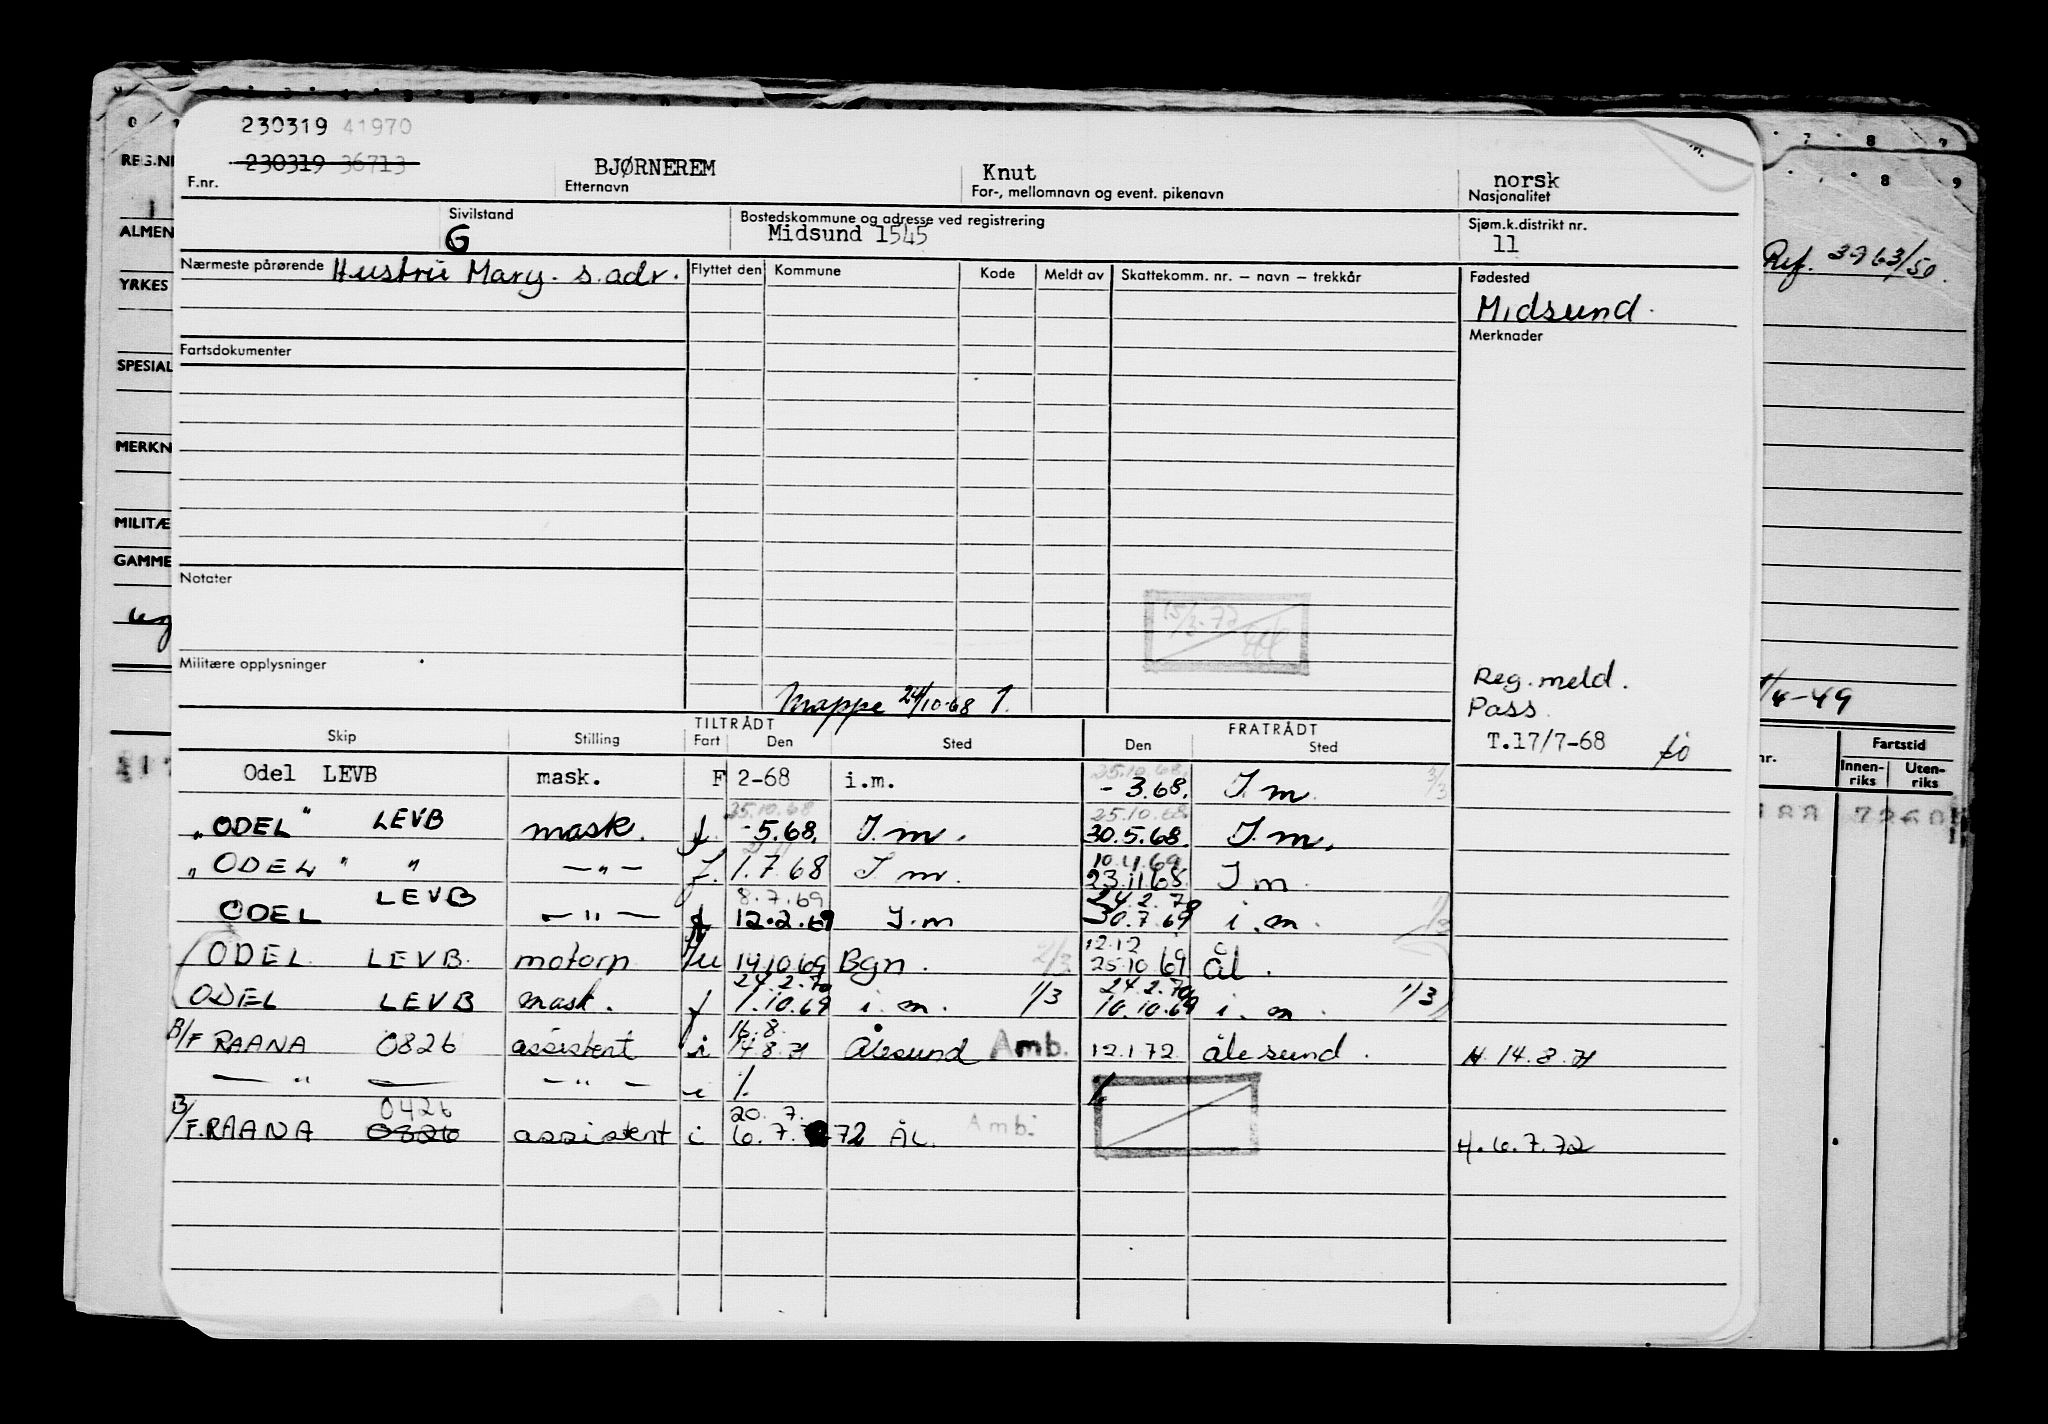 230319 41970
230319 36713
F.nr.
BJØRNEREM
Etternavn
Knut
For-, mellomnavn og event. pikenavn
norsk
Nasjonalitet
Sivilstand
G
Bostedskommune og adresse ved registrering
Midsund 1545
Sjøm.k.distrikt nr.
11
Nærmeste pårørende Hustru Mary. s. adr.
Flyttet den Kommune Kode Meldt av Skattekomm. nr. — navn — trekkår
Fødested
Midsund.
Merknader
Fartsdokumenter
Notater
Militære opplysninger
Mappe 24/10-68
Reg. meld.
Pass
T.17/7-68
TILTRÅDT FRATRÅDT
Skip Stilling Fart Den Sted Den Sted
25.10.68.
Odel LEVB mask. F 2-68 i.m. - 3.68. I.m. 3/3
25.10.68 25.10.68
"ODEL" LEVB mask. f. -5.68. I.m. 30.5.68. I.m.
10.11.69
"ODEL" " —"— f. 1.7.68 I m. 23.11.68 I m.
8.7.69 24.2.70
ODEL LEVB —"— f 12.2.69 I.m 30.7.69 i.m.
12.12
ODEL LEVB. motorp N/u 14.10.69 Bgn. 2/3 25.10.69 Ål.
24.2.70 24.2.70
ODEL LEVB mask. f 1.10.69 i.m. 1/3 10.10.69 i.m. 1/3
16.8.
B/F RAANA 0826 assistent i 14.8.71 Ålesund Amb. 12.1.72 Ålesund. H. 14.8.71
—"— —"— i
0426 20.7.
B/F. RAANA 0826 assistent i 6.7.72 ÅL. Amb. H. 6.7.72
REG.NR
ALMEN
YRKES
SPESIAL
MERKN
MILITÆ
GAMME
7 8 9
8 9
Ref. 3963/50.
1/4-49
nr.
Fartstid
Innen-riks Uten-riks